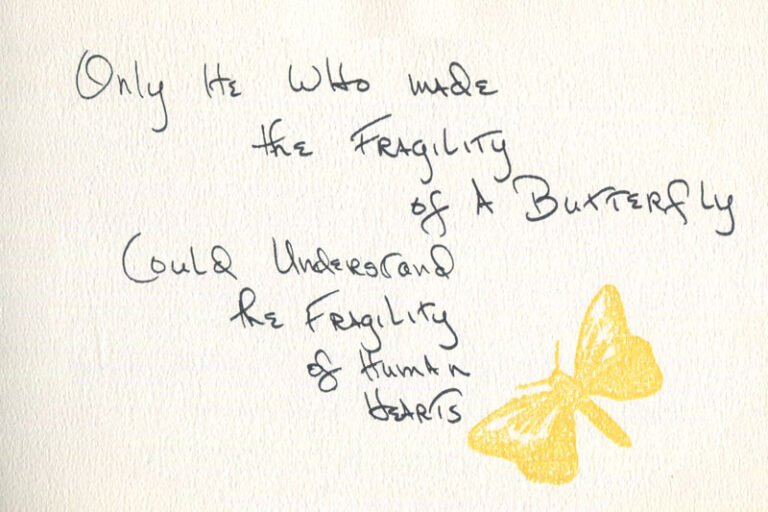 Only He Who made
the Fragility
of A Butterfly
Could Understand
the Fragility
of Human
Hearts